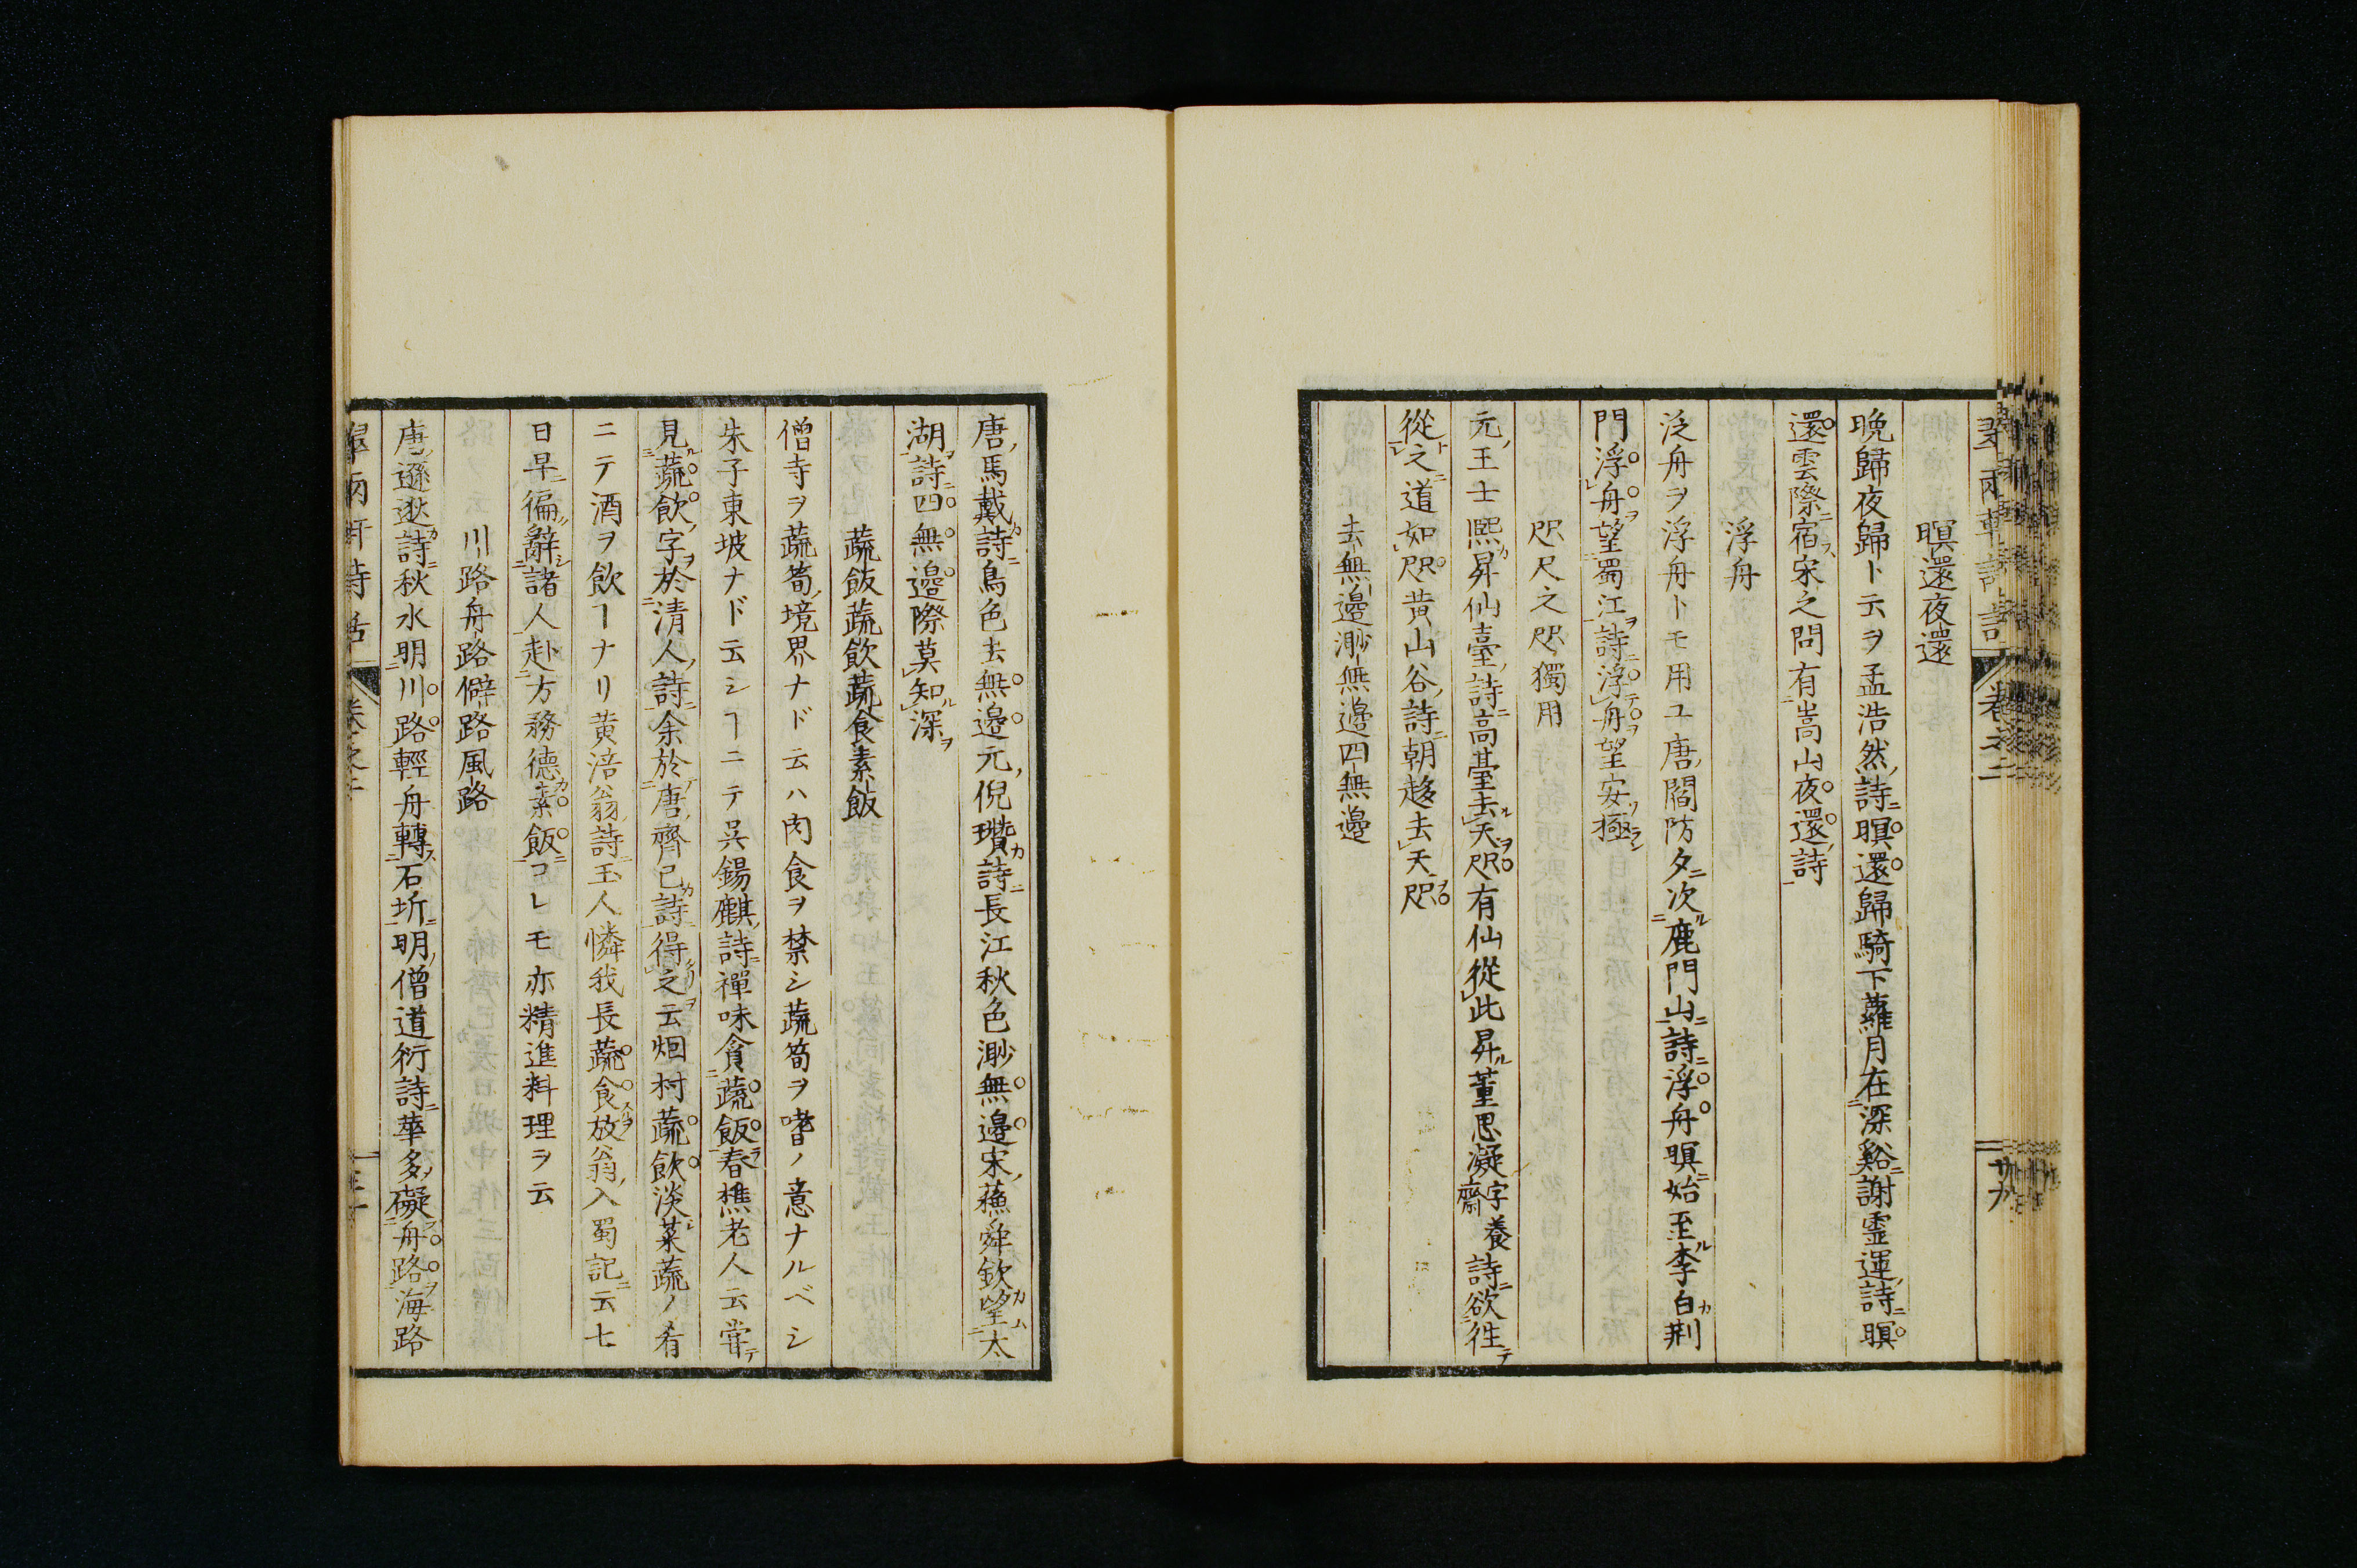 暝還夜還
晩歸夜歸ト云ヲ孟浩然詩ニ暝還歸騎下蘿月在深谿謝霊運詩ニ暝
還雲際宿宋之問有嵩山夜還詩
浮舟
泛舟ヲ浮舟トモ用ユ唐閻防夕次鹿門山詩ニ浮舟暝始至李白荆
門浮舟望蜀江詩ニ浮舟望安極
咫尺之咫獨用
元王士熙昇仙臺詩ニ高臺去天咫有仙從此昇董思凝字養齋詩ニ欲徃
從之道如咫黄山谷詩ニ朝趍去天咫
去無邉渺無邉四無邉
唐馬戴詩ニ鳥色去無邉元倪瓚詩ニ長江秋色渺無邉宋蘓舜欽望太
湖詩ニ四無邉際莫知深
蔬飯蔬飲蔬食素飯
僧寺ヲ蔬筍境界ナド云ハ肉食ヲ禁シ蔬筍ヲ嗜ノ意ナルベシ
朱子東坡ナド云シヿニテ呉錫麒詩ニ禪味貪蔬飯春樵老人云甞テ
見蔬飲字於清人詩余於唐齊己詩得之云烟村蔬飲淡菜蔬ノ肴
ニテ酒ヲ飲ヿナリ黄涪翁詩ニ玉人憐我長蔬食放翁入蜀記ニ云七
日早徧辭諸人赴方務德素飯コレモ亦精進料理ヲ云
川路舟路僻路風路
唐遜逖詩ニ秋水明川路輕舟轉石圻明僧道衍詩ニ華多礙舟路海路